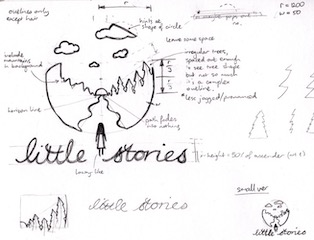 outlines only
except hair
hints at
shape of circle
r = 200
w = 50
leave some space
include
mountains
in background
irregular trees,
spaced out enough
to see tree shape
but not so much
it's a complex
outline.
*less jagged/pronounced
horizon line
path fades
into nothing
little stories
x-height = 50% of ascender
long hair
little stories
small ver
little stories